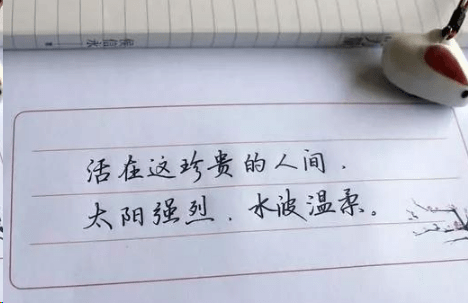 活在这珍贵的人间，
太阳强烈，水波温柔。